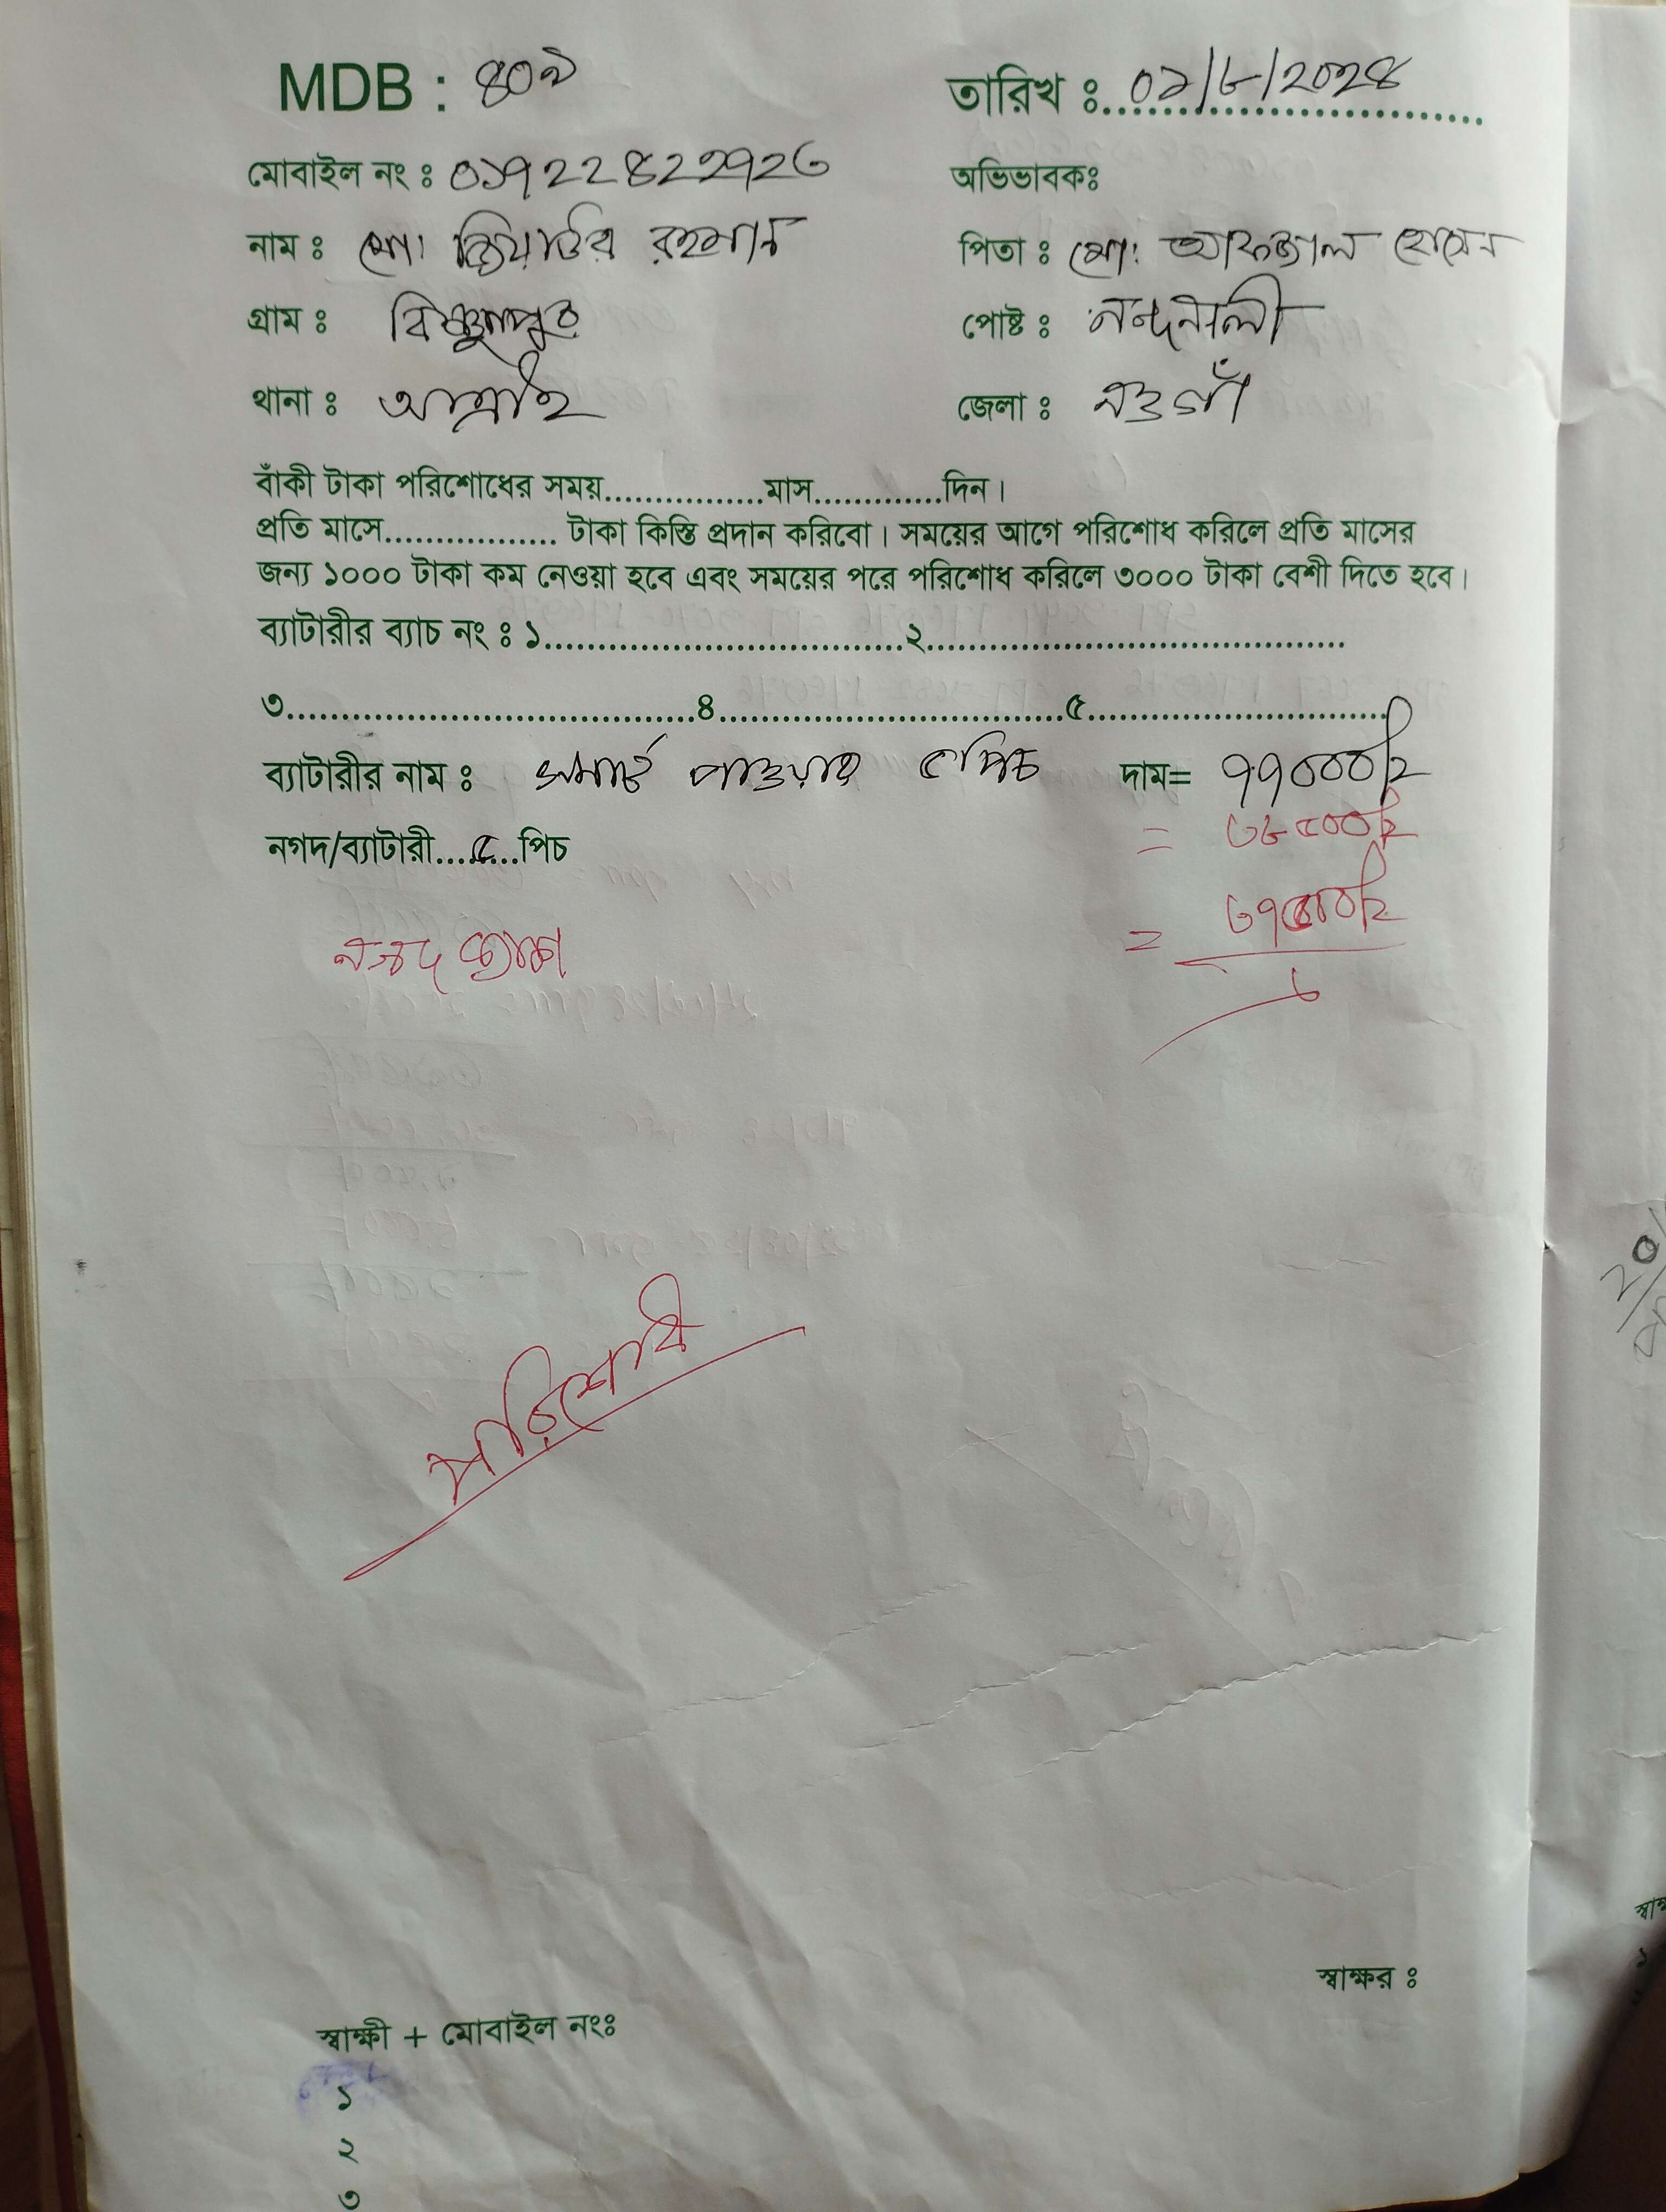 MDB : ৪০৯
তারিখ ঃ ০৯/৮/২০২৪
মোবাইল নং ঃ
অভিভাবকঃ
নাম ঃ মো: জিয়াউর রহমান
পিতা ঃ মো: আফজাল হোসেন
গ্রাম ঃ বিষ্ণুপুর
পোষ্ট ঃ নন্দনালী
থানা ঃ আত্রাই
জেলা ঃ নওগাঁ
বাঁকী টাকা পরিশোধের সময়................মাস.............দিন।
প্রতি মাসে................. টাকা কিস্তি প্রদান করিবো। সময়ের আগে পরিশোধ করিলে প্রতি মাসের
জন্য ১০০০ টাকা কম নেওয়া হবে এবং সময়ের পরে পরিশোধ করিলে ৩০০০ টাকা বেশী দিতে হবে।
ব্যাটারীর ব্যাচ নং ঃ ১....................................২..........................................
৩.........................................৪...................................৫..............................
ব্যাটারীর নাম ঃ স্মার্ট পাওয়ার ৫ পিচ দাম= ৭৭০০০/=
নগদ/ব্যাটারী....৫...পিচ = ৩৮৫০০/=
নগদ =
পরিশোধ
স্বাক্ষর ঃ
স্বাক্ষী + মোবাইল নংঃ
১
২
৩